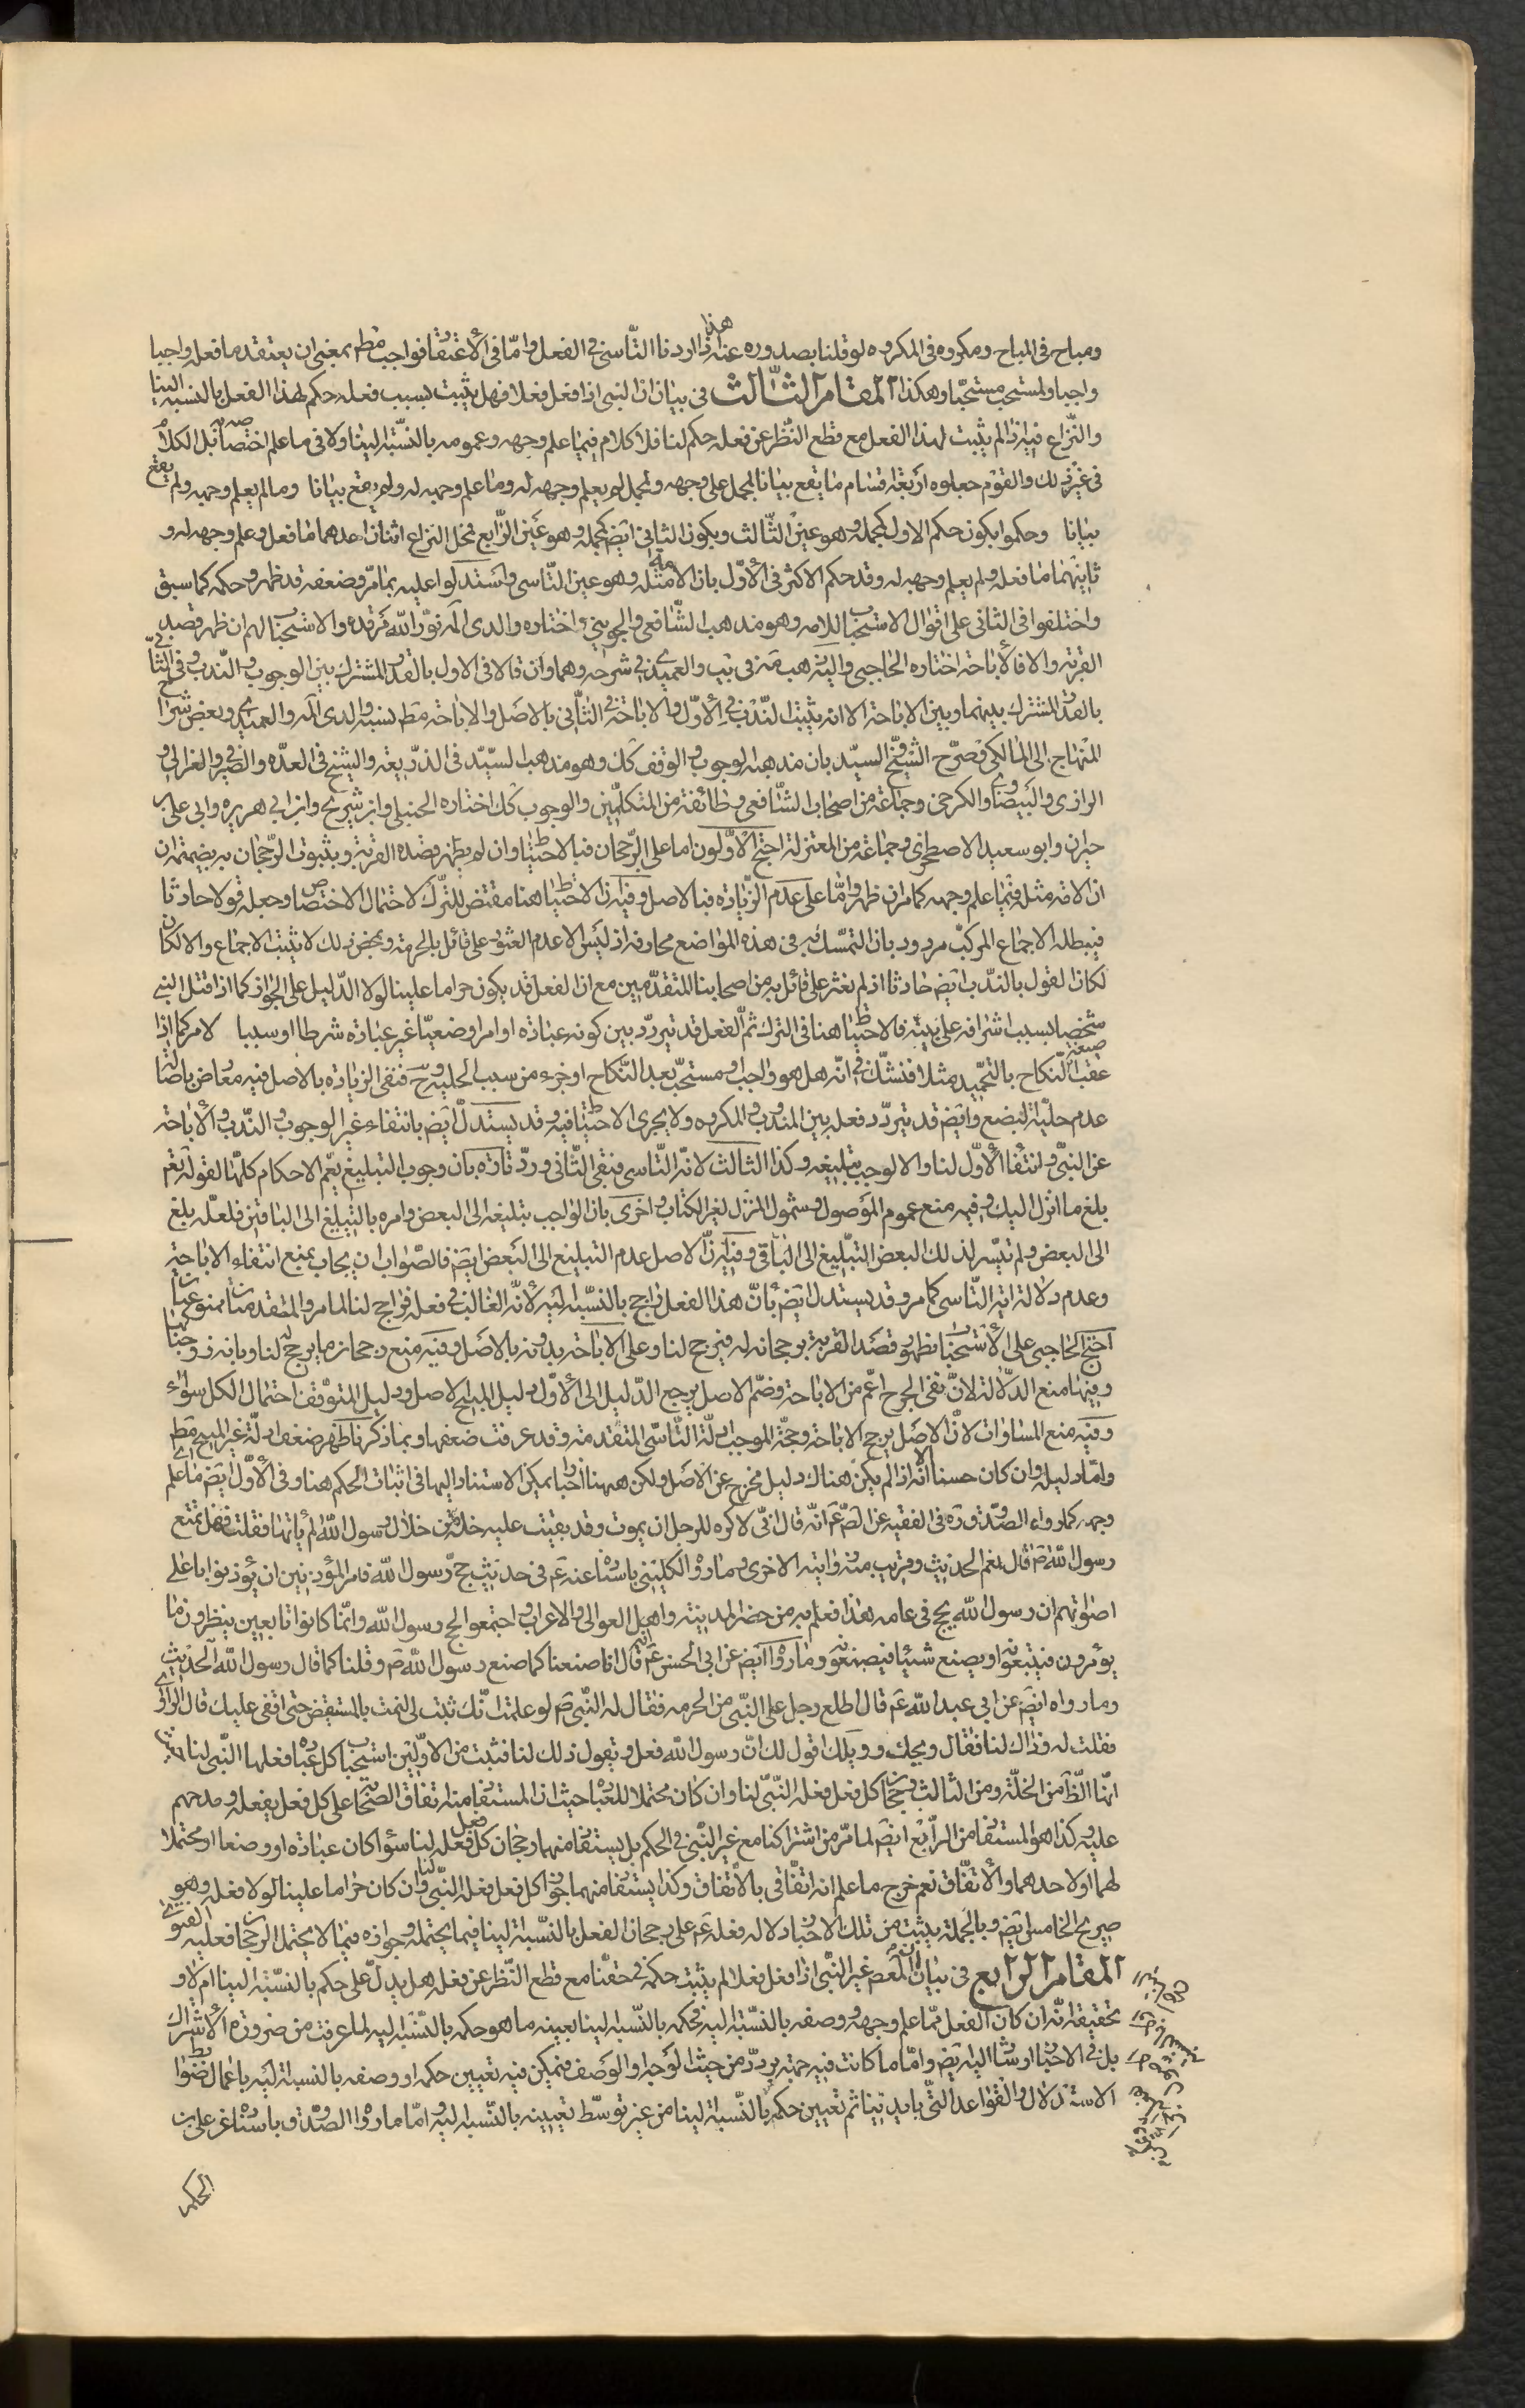 ومباح فى المباح ومكروه فى المكروه لو قلنا بصدوره عنه هذا اذا اردنا التّاسى فى الفعل وامّا فى الأعتقاد فواجب مطم بمعنى ان يعتقد ما فعله واجبا
واجبا والمستحب مستحبّا وهكذا المقام الثّالث فى بيان ان النبى اذا فعل فعلا فهل يثبت بسبب فعله حكم لهذا الفعل بالنسبة الينا
والنّزاع فيه اذا لم يثبت لهذا الفعل مع قطع النّظر عن فعله حكم لنا فلا كلام فيما علم وجهه وعمومه بالنّسبة الينا ولا فى ما علم اختصاصه بل الكلام
فى غير ذلك والقوم جعلوه اربعة اقسام ما يقع بيانا لمجمل علم وجهه ولمجمل لم يعلم وجهه له وما علم وجهه له ولم يقع بيانا وما لم يعلم وجهه ولم يقع
بيانا وحكموا بكون حكم الاول كمجمله وهو عين الثّالث وبكون الثانى ايض كمجمله وهو عين الرّابع فمحل النزاع اثنان احدهما ما فعل وعلم وجهه له و
ثانيهما ما فعله ولم يعلم وجهه له وقد حكم الاكثر فى الأوّل بان الامة مثله وهو عين التّاسى واستدلوا عليه بمامرّ وضعفه قد ظهر وحكمه كما سبق
واختلفوا فى الثانى على اقوال الاستحباب للامه وهو مذهب الشّافعى والجوينى واختاره والدى العلامه نوّر الله مرقده والاستحباب لهم ان ظهر قصد
القربة والا فالأباحة اختاره الحاجبى واليه ذهب مة فى يب والعميدى فى شرحه وهما وان قالا فى الاول بالقدر المشترك بين الوجوب والنّدب وفى الثّانى
بالقدر المشترك بينهما وبين الاباحة الا انه يثبت النّدب فى الأوّل والاباحة فى الثّانى بالاصل والاباحة مطم نسبه والدى العلامه والعميدى وبعض شراح
المنهاج الى المالكى وصرّح الشّيخ والسيّد بان مذهبه الوجوب والوقف كك وهو مذهب السّيّد فى الذّريعة والشيخ فى العدّه والصيرفى والغزالى و
الرازى والبيضاوى والكرخى وجماعة من اصحاب الشّافعى وطائفة من المتكلّمين والوجوب كك اختاره الحنبلى وابن شريح وابن ابى هريره وابى على بن
خيران وابو سعيد الاصطخرى وجماعة من المعتزلة احتج الأوّلون اما على الرّجحان فبالاحتياط وان لم يظهر قصده القربة وبثبوت الرّجحان به بضميمة ان
ان الامة مثله فيما علم وجهه كمامر ان ظهر وامّا على عدم الزّياده فبالاصل وفيه ان الاحتياط هنا مقتض للتّرك لاحتمال الاختصاص وجعله قولا حادثا
فيبطله الاجماع المركّب مردود بان التمسّك به فى هذه المواضع مجازفة اذ ليس الا عدم العثور على قائل بالحرمة وبمحض ذلك لا يثبت الاجماع والا لكان
لكان القول بالندب ايض حادثا اذ لم نعثر على قائل به من اصحابنا المتقدّمين مع ان الفعل قد يكون حراما علينا لولا الدّليل على الجواز كما اذا قتل النبى
شخصا بسبب اشرافه على بيته فالاحتياط هنا فى الترك ثم الفعل قد يتردّد بين كونه عبادة او امرا وضعيّا غير عبادة شرطا او سببا لامر كما اذا
عقب صيغة النّكاح بالتّحميد مثلا فنشك فى انّه هل هو واجب او مستحبّ بعد النّكاح او جزء من سبب الحلية وح فنفى الزيادة بالاصل فيه معارض باصالة
عدم حليّة البضع وايض قد يتردّد فعله بين المندوب والمكروه ولا يجرى الاحتياط فيه وقد يستدلّ ايض بانتفاء غير الوجوب والنّدب والأباحة
عن النبىّ وانتفاء الأوّل لنا والا لوجب تبليغه وكذا الثالث لانّه التّاسى فبقى الثّانى وردّ تارة بان وجوب التبليغ يعمّ الاحكام كلّها لقوله تعم
بلغ ما انزل اليك وفيه منع عموم الموصول وشمول المنزل لغير الكتاب واخرى بان الواجب تبليغه الى البعض وامره بالتّبليغ الى الباقين فلعلّه بلغ
الى البعض ولم تيسّر لذلك البعض التّبليغ الى الباقى وفيه انّ الاصل عدم التبليغ الى البعض ايض فالصّواب ان يجاب بمنع انتفاء الاباحة
وعدم دلالة اية التّاسى كمامر وقد يستدل ايض بانّ هذا الفعل راجح بالنّسبة اليه لأنّه الغالب فى فعله فراجح لنا لمامر والمتقدمتان ممنوعتان
احتج الحاجبى على الأستحباب بظهور قصد القربة برجحانه له فيرجح لنا وعلى الاباحة بدونه بالاصل وفيه منع رجحان ما يرجح له لنا وبانه زوجناكها
وفيها منع الدّلالة لانّ نفى الحرج اعمّ من الاباحة وضمّ الاصل يرجع الدّليل الى الأوّل ودليل المبيح الاصل ودليل المتوقف احتمال الكل سواء
وفيه منع المساوات لانّ الاصل يرجح الاباحة وحجّة الموجب ادلّة التّاسّى المتقدمة وقد عرفت ضعفها وبما ذكرنا ظهر ضعف ادلّة غير المبيح مطم
وامّا دليله وان كان حسنا الا انّه اذا لم يكن هناك دليل مخرج عن الاصل ولكن ههنا اخبار يمكن الاستناد اليها فى اثبات الحكم هنا وفى الأوّل ايض ما علم
وجهه كما رواه الصّدوق ره فى الفقيه عن الصّ عم انّه قال انّى لاكره للرجل ان يموت وقد بقيت عليه خلّة من خلال رسول الله لم يأتها فقلت فهل تمتع
رسول الله ص قال نعم الحديث وقريب منه روايته الاخرى وما رواه الكلينى باسناده عنه عم فى حديث حجّ رسول الله فامر المؤذنين ان يؤذنوا باعلى
اصواتهم ان رسول الله يحج فى عامه هذا فعلم به من حضر المدينة واهل العوالى والاعراب واجتمعوا لحج رسول الله وانّما كانوا تابعين ينظرون ما
يؤمرون فيتبعونه او يصنع شيئا فيصنعونه وما رواه ايض عن ابى الحسن عم انه قال انا صنعنا كما صنع رسول الله ص وقلنا كما قال رسول الله الحديث
وما رواه ايض عن ابى عبد الله عم قال اطلع رجل على النّبى من الحرمه فقال له النّبى ص لو علمت انّك ثبت لى لقمت بالمستقض حتى افقى عليك قال الراوى
فقلت له وذاك لنا فقال ويحك وويلك اقول لك انّ رسول الله فعل وتقول ذلك لنا فثبت من الاوّلتين استحباب كل عبادة فعلها النّبى لنا
انّها الظّ من الخلّة ومن الثالث رجحان كل فعل فعله النّبىّ لنا وان كان محتملا للعبادة حيث ان المستفاد منه اتفاق الصّحابة على كل فعل يفعله ومدحهم
عليه وكذا هو المستفاد من الرّابع ايض لمامرّ من اشتراكنا مع غير النّبى فى الحكم بل يستفاد منهما رجحان كل فعل فعله لنا سواء كان عبادة او وضعا او محتملا
لهما او لاحدهما والأتّفاق نعم خرج ما علم انه اتفاقى بالأتفاق وكذا يستفاد منهما جواز كل فعل فعله النّبى لنا وان كان حراما علينا لولا فعله وهو
صريح الخامس ايض وبالجملة يثبت من تلك الاخبار دلالة فعله عم على رجحان الفعل بالنّسبة الينا فيما يحتمله وجوازه فيما لا يحتمل الرّجحان فعليه الفتوى
المقام الرّابع فى بيان ان المعصوم غير النّبى اذا فعل فعلا لم يثبت حكمه فى حقّنا مع قطع النّظر عن فعله هل يدلّ على حكم بالنّسبة الينا ام لا و
تحقيقه انّه ان كان الفعل ممّا علم وجهه ووصفه بالنّسبة اليه فحكمه بالنّسبة الينا بعينه ما هو حكمه بالنّسبة اليه لما عرفت من ضرورة الأشتراك
بل فى الاخبار ارشاد اليه ايض وامّا ما كانت فيه جهة تردّد من حيث الوجه او الوصف فيمكن فيه تعيين حكمه او وصفه بالنسبة اليه باعمال ضوابط
الاستدلال والقواعد التّى بايدينا ثم تعيين حكمه بالنّسبة الينا من غير توسّط تعيينه بالنّسبة اليه وامّا ما رواه الصّدوق باسناده عن على بن
الحكم